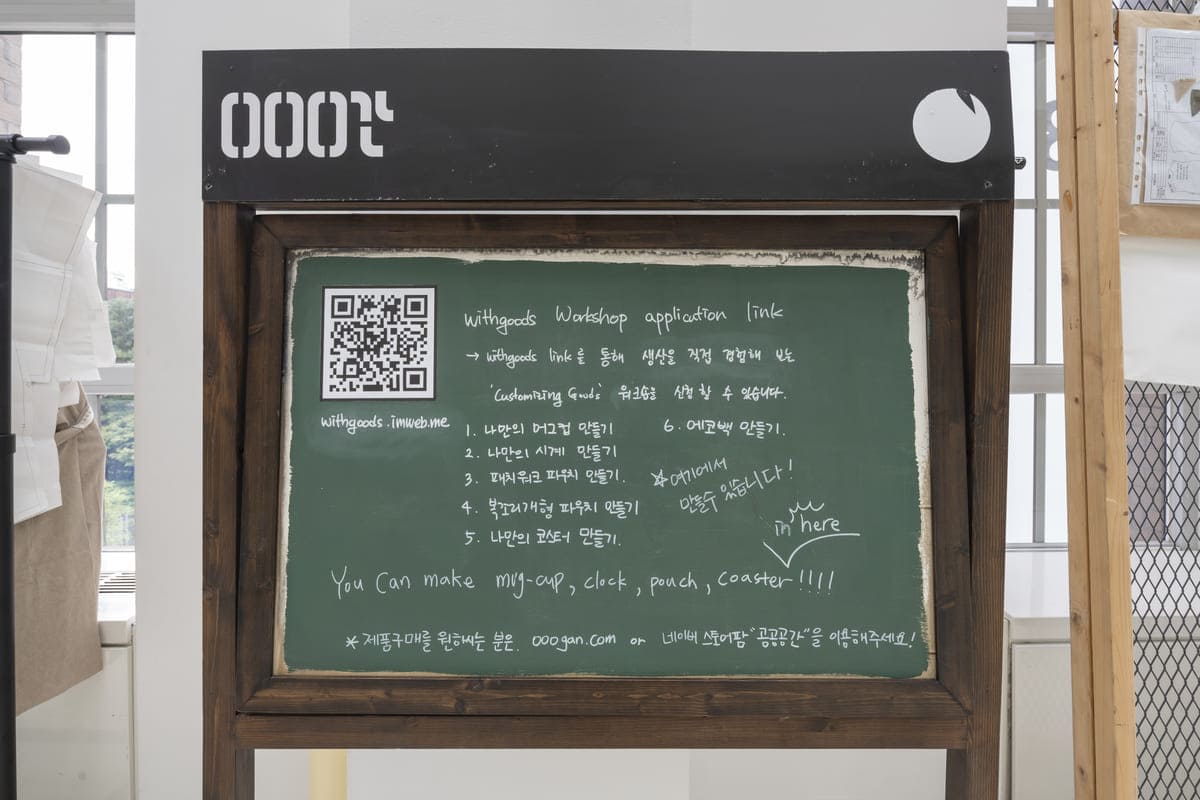 000간
withgoods Workshop application link
→ withgoods link를 통해 생산을 직접 경험해 보는
'Customizing Goods' 워크숍을 신청 할 수 있습니다.
withgoods.imweb.me
1. 나만의 머그컵 만들기
2. 나만의 시계 만들기
3. 패치워크 파우치 만들기.
4. 복조리개형 파우치 만들기
5. 나만의 코스터 만들기.
6. 에코백 만들기.
☆여기에서
만들수 있습니다!
in here
You Can make mug-cup, clock, pouch, coaster!!!!
* 제품구매를 원하시는 분은. 000gan.com or 네이버 스토어팜 "공공공간"을 이용해주세요!